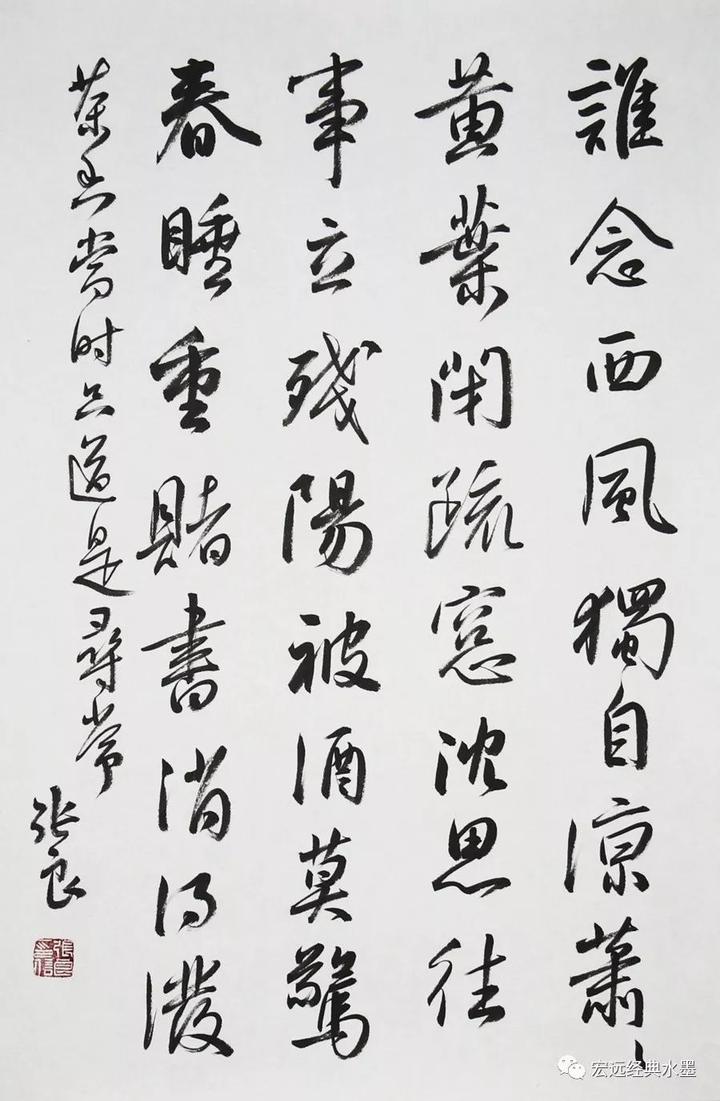 誰念西風獨自涼蕭〻
黄葉閉疏窓沈思往
事立殘陽被酒莫驚
春睡重賭書消得潑
茶香當时只道是尋常
张良
宏远经典水墨